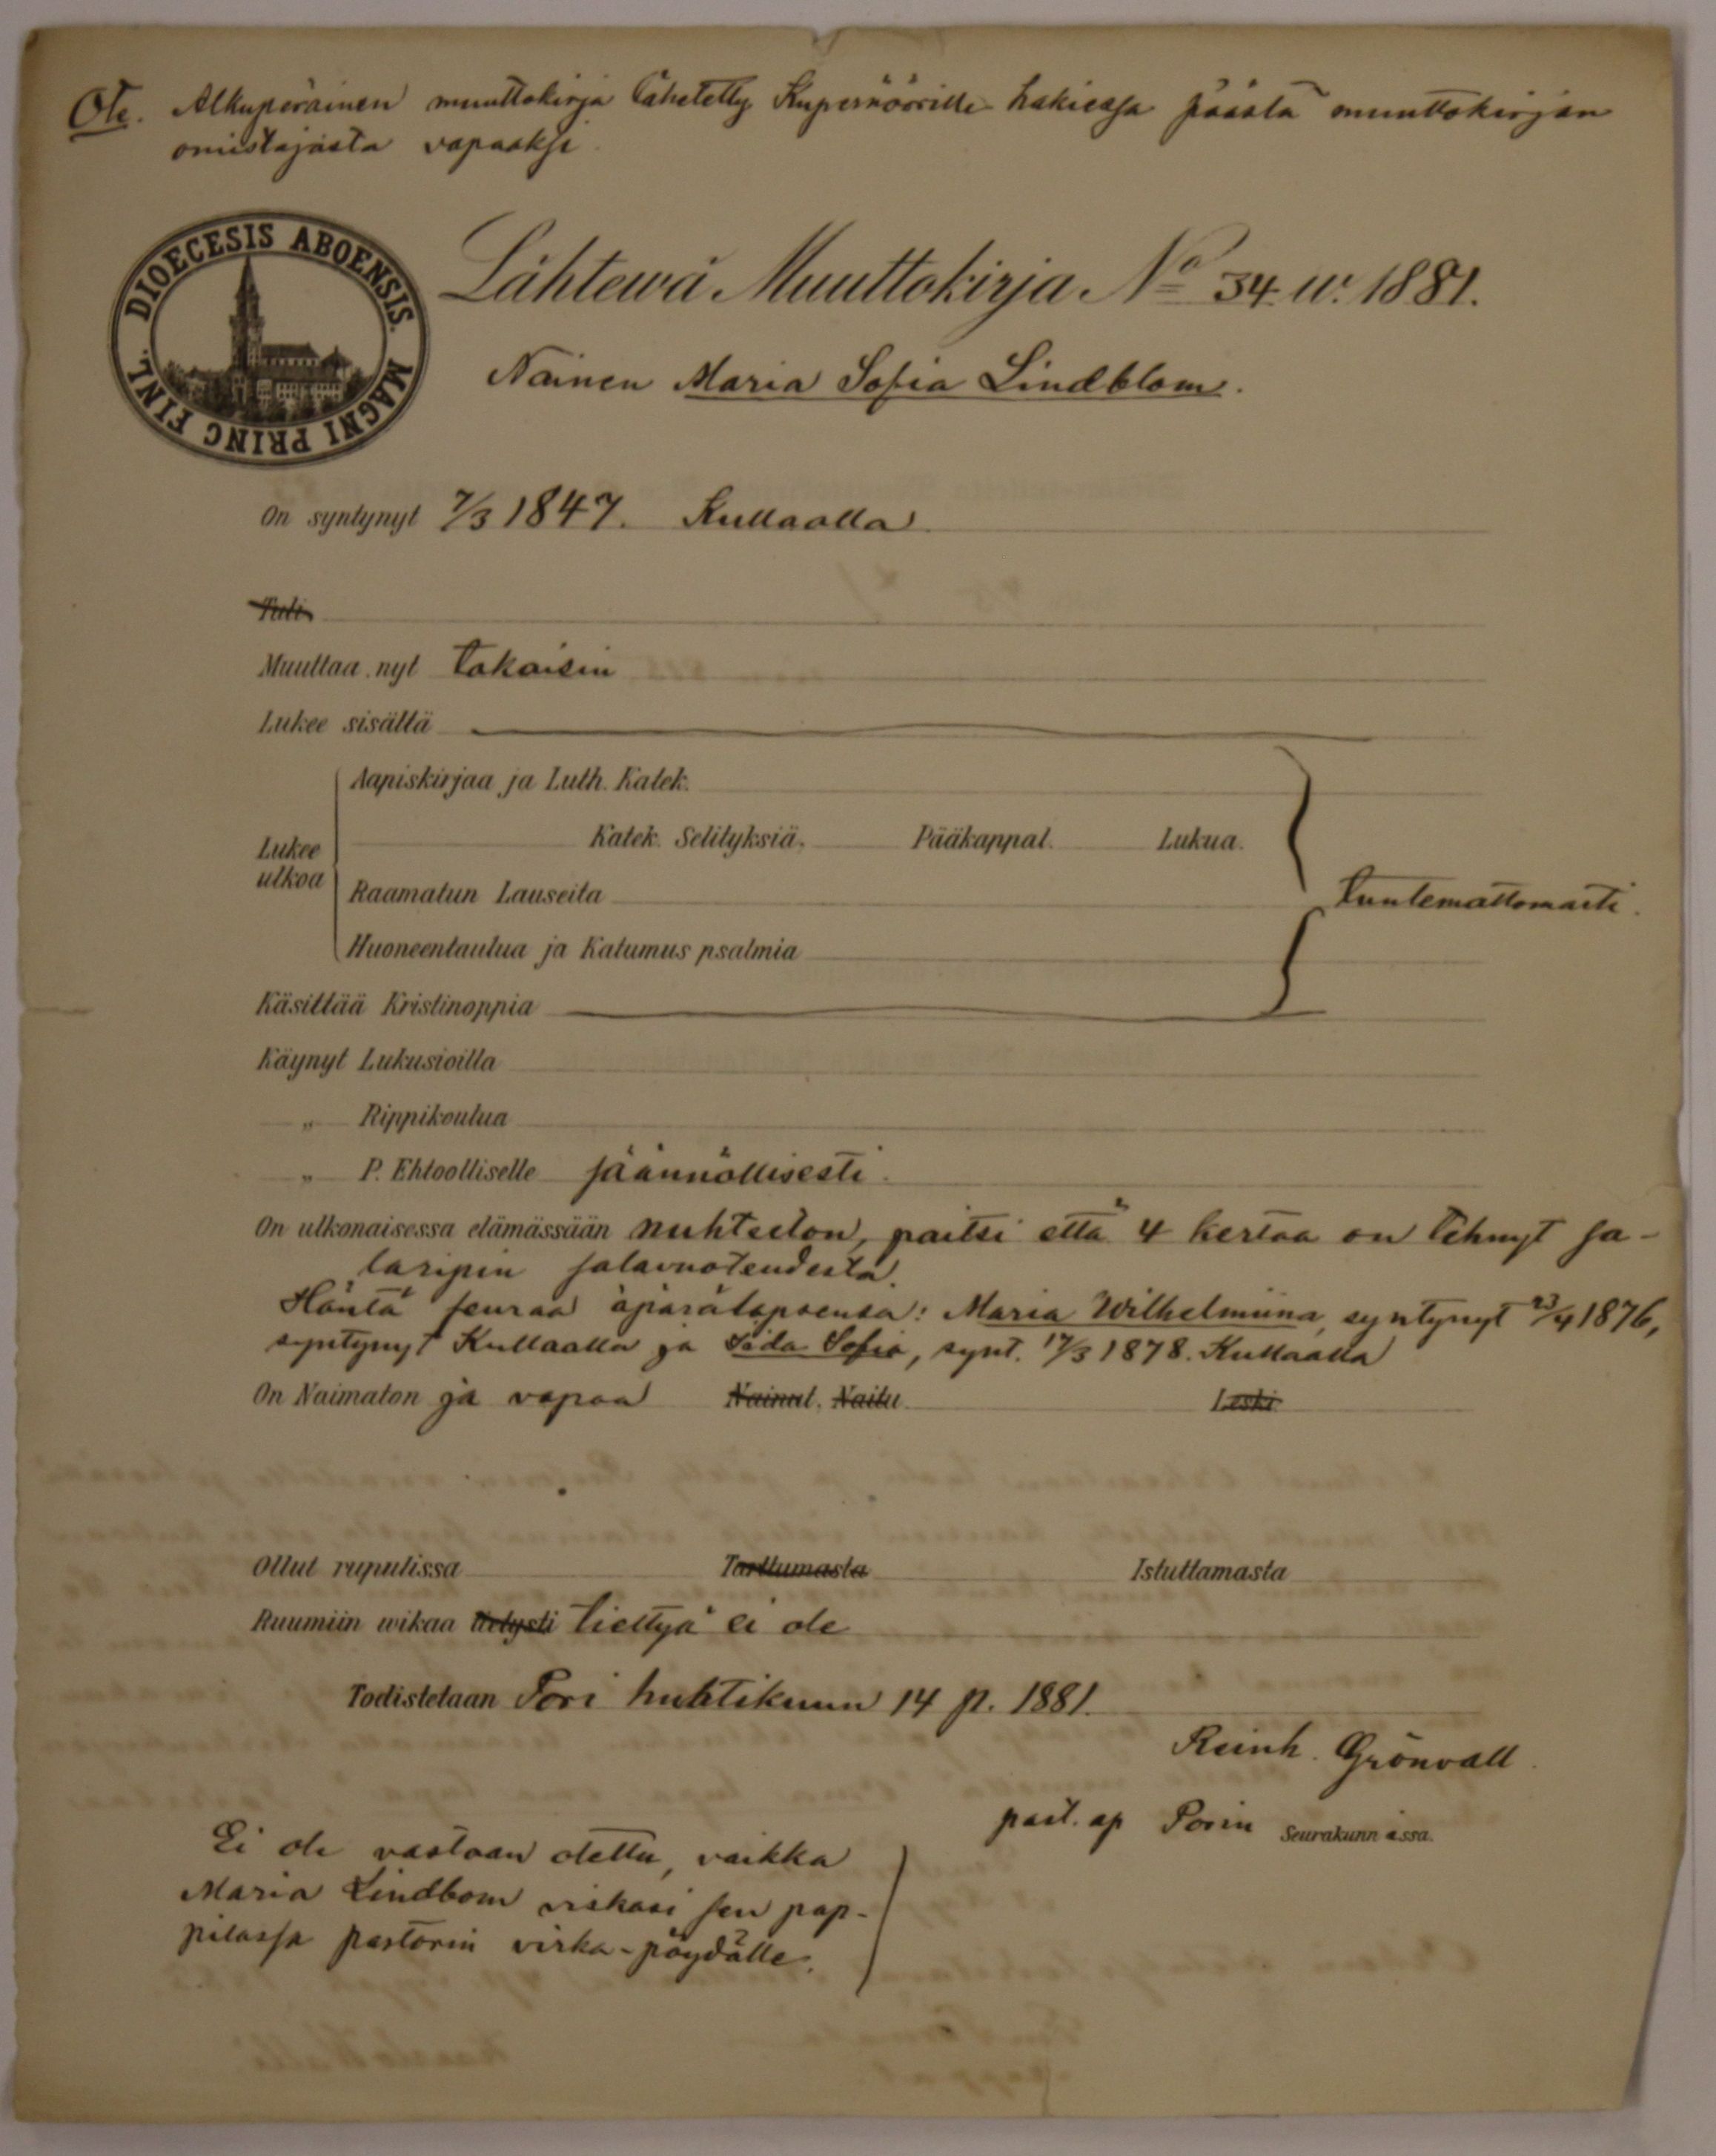 Ote. Alkuperäinen muuttokirja lähetetty Kupernöörille hakiessa päästä muuttokirjan
omistajasta vapaaksi.
DIOECESIS ABOENSIS. MAGNI PRINC FINL.
Lähtewä Muuttokirja No 34 w. 1881.
Nainen Maria Sofia Lindblom.
On syntynyt 7/3 1847. Kullaalla
Tuli
Muuttaa nyt takaisin
Lukee sisältä
Aapiskirjaa ja Luth. Katek.
Katek. Selityksiä, Pääkappal. Lukua.
Lukee
ulkoa
Raamatun Lauseita
tuntemattomasti.
Huoneentaulua ja Katumus psalmia
Käsittää Kristinoppia
Käynyt Lukusioilla
„ Rippikoulua
„ P. Ehtoolliselle säännöllisesti.
On ulkonaisessa elämässään nuhteeton, paitsi että 4 kertaa on tehnyt sa-
laripin salavuoteudesta.
Häntä seuraa äpärälapsensa: Maria Wilhelmiina, syntynyt 23/4 1876,
syntynyt Kullaalla ja Iida Sofia, synt. 17/3 1878. Kullaalla
On Naimaton ja vapaa Nainut, Naitu Leski
Ollut rupulissa Tarttumasta Istuttamasta
Ruumiin wikaa tietysti tiettyä ei ole
Todistetaan Pori huhtikuun 14 p. 1881.
Reinh. Grönvall.
past. ap Porin Seurakunnassa.
Ei ole vastaan otettu, vaikka
Maria Lindbom viskasi sen pap-
pilassa pastorin virka-pöydälle.